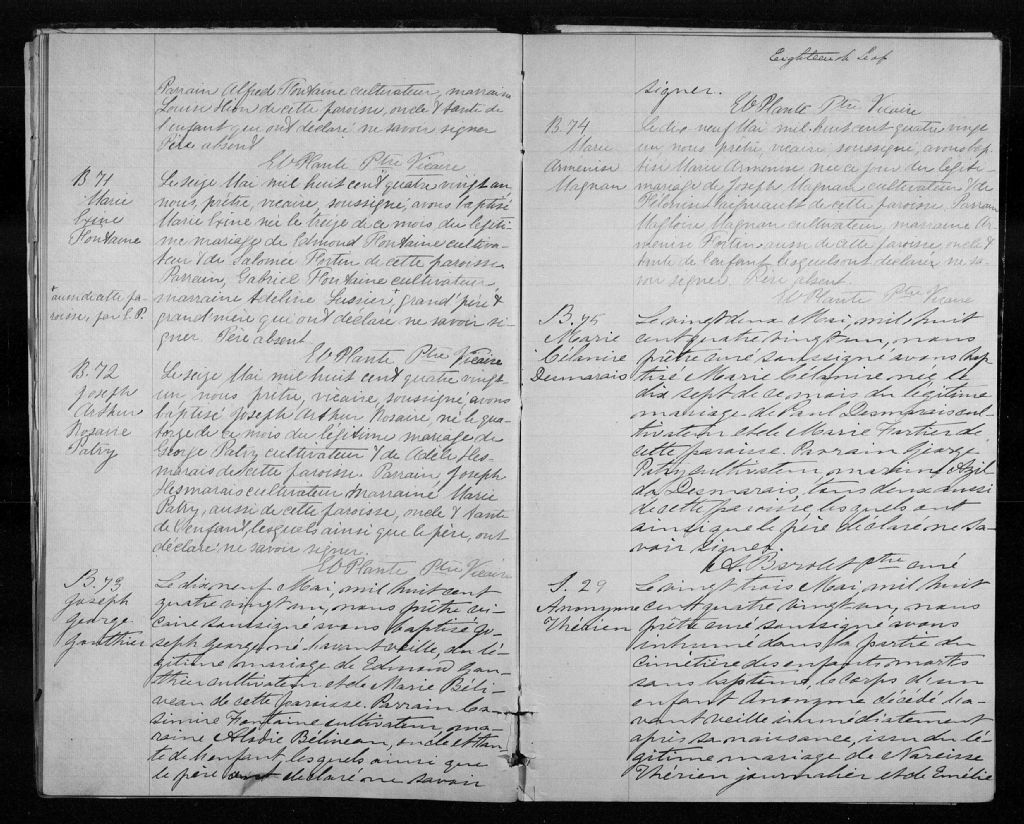 Parrain Alfred Fontaine cultivateur, marraine
Louise de cette paroisse, oncle & tante de
l'enfant qui ont déclaré ne savoir signer
Père absent
E V Plante Ptre Vicaire
B. 71
Marie
Fontaine
Le seize Mai mil huit cent quatre vingt un
nous, prêtre, vicaire, soussigné, avons baptisé
Marie née le treize de ce mois du légiti-
me mariage de Edmond Fontaine cultiva-
teur & de Salomée Fortin de cette paroisse
Parrain, Gabriel Fontaine cultivateur,
marraine Adeline Lussier, grand'père &
grand'mère qui ont déclaré ne savoir si-
gner Père absent
+ aussi de cette pa-
roisse, par E. P.
E V Plante Ptre Vicaire
B. 72
Joseph
Arthur
Rosaire
Patry
Le seize Mai mil huit cent quatre vingt
un, nous prêtre, vicaire, soussigné, avons
baptisé Joseph Arthur Rosaire, né le qua-
torze de ce mois du légitime mariage de
George Patry cultivateur & de Adèle Des-
marais de cette paroisse. Parrain, Joseph
Desmarais cultivateur marraine Marie
Patry, aussi de cette paroisse, oncle & tante
de l'enfant, lesquels ainsi que le père, ont
déclaré ne savoir signer.
E V Plante Ptre Vicaire
B. 73
Joseph
George
Gauthier
Le dix neuf Mai, mil huit cent
quatre vingt un, nous prêtre vi-
caire soussigné avons baptisé Jo-
seph George, né l'avant veille, du lé-
gitime mariage de Edmond Gau-
thier cultivateur et de Marie Béli-
veau de cette paroisse. Parrain Ca-
simire Fontaine cultivateur, ma-
raine Elodie Béliveau, oncle et tan-
te de l'enfant, lesquels ainsi que
le père ont déclaré ne savoir
Eighteenth Leaf
signer.
E V Plante Ptre Vicaire
B. 74
Marie
Arménise
Magnan
Le dix neuf Mai mil huit cent quatre vingt
un nous, prêtre, vicaire, soussigné, avons bap-
tisé Marie Arménise née ce jour du légiti-
mariage de Joseph Magnan cultivateur & de
de cette paroisse. Parrain
Magloire Magnan cultivateur, marraine Ar-
Fortin aussi de cette paroisse, oncle &
tante de l'enfant lesquels ont déclaré ne sa-
voir signer. Père absent.
E V Plante Ptre Vicaire
B. 75
Marie
Célanire
Desmarais
Le vingt deux Mai, mil huit
cent quatre vingt un, nous
prêtre curé soussigné avons bap
tisé Marie Célanire née le
dix sept de ce mois du légitime
mariage de Paul Desmarais cul-
tivateur et de Marie Fortier de
cette paroisse. Parrain George
Patry cultivateur, marraine
Desmarais, tous deux aussi
de cette paroisse lesquels ont
ainsi que le père déclaré ne sa-
voir signer.
ptre curé
S. 29
Anonyme
Thérien
Le vingt trois Mai, mil huit
cent quatre vingt un, nous
prêtre curé, soussigné avons
inhumé dans la partie du
cimetière des enfants morts
sans baptême, le corps d'un
enfant Anonyme décédé l'a-
vant veille immédiatement
après sa naissance, issu du lé-
gitime mariage de Narcisse
Thérien journalier et de Emélie